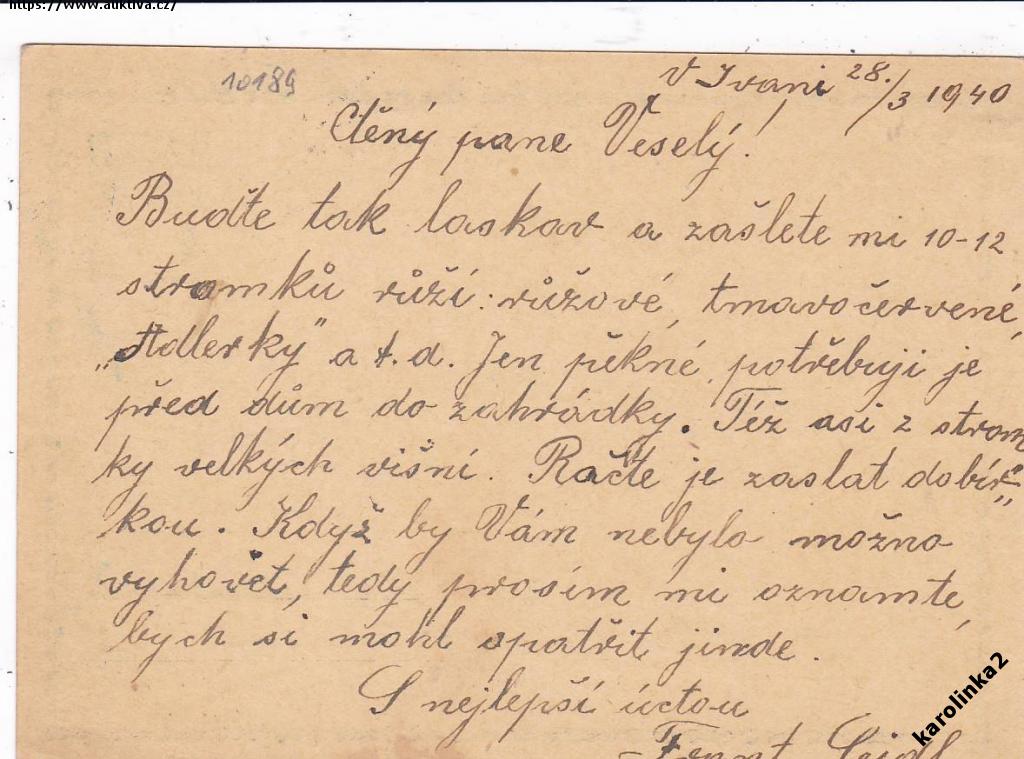 https://www.auktiva.cz/
10189
V Ivani 28./3 1940
Ctěný pane Veselý!
Buďte tak laskav a zašlete mi 10-12
stromků růží: růžové, tmavočervené,
„Adlerky" a t. d. Jen pěkné, potřebuji je
před dům do zahrádky. Též asi 2 strom
ky velkých višní. Račte je zaslat dobír-
kou. Když by Vám nebylo možno
vyhovět, tedy prosím mi oznamte,
bych si mohl opatřit jinde.
S nejlepší úctou
karolinka2